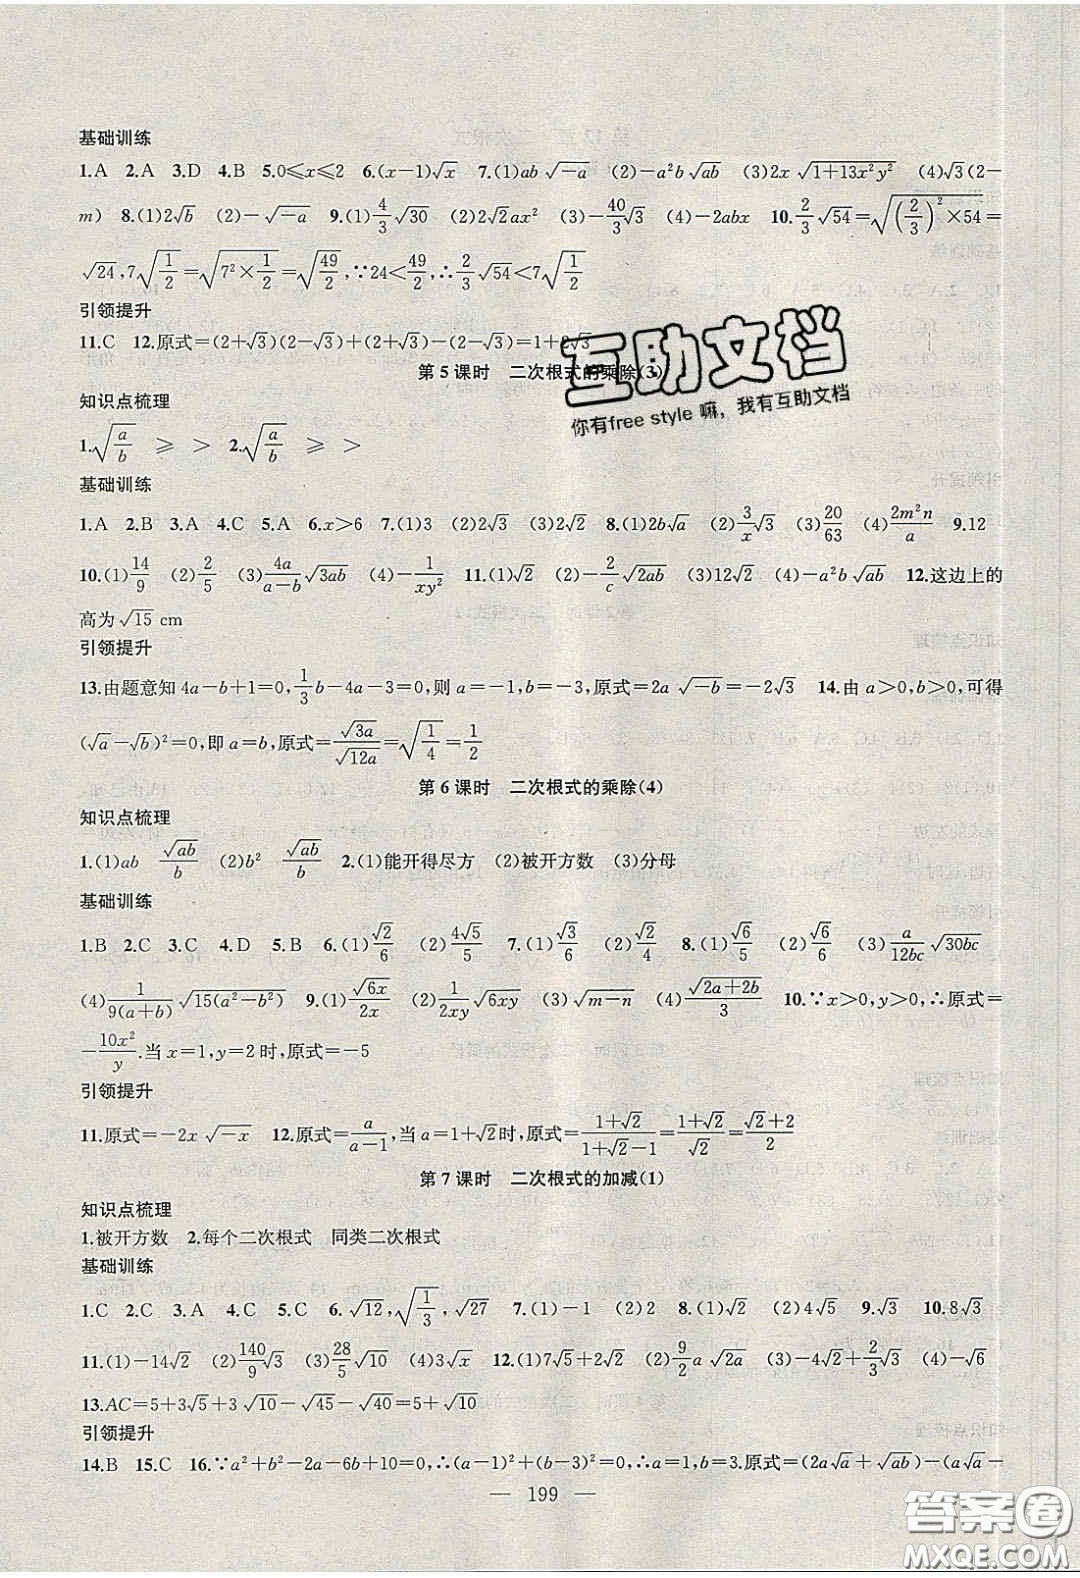 基础训练
1.A 2.A 3.D 4.B 5.0≤x≤2 6.(x-1)√x 7.(1)ab√(-a) (2)-a²b√(ab) (3)2x√(1+13x²y²) (4)√3(2-
m) 8.(1)2√b (2)-√(-a) 9.(1)4/3√30 (2)2√2ax² (3)-40/3√3 (4)-2abx 10.2/3√54=√((2/3)²×54)=
√24,7√(1/2)=√(7²×1/2)=√(49/2),∵24<49/2,∴2/3√54<7√(1/2)
引领提升
11.C 12.原式=(2+√3)(2-√3)+(2+√3)-(2-√3)=1+2√3
第5课时 二次根式的乘除(3)
知识点梳理
1.√(a/b) ≥ > 2.√(a/b) ≥ >
基础训练
1.A 2.B 3.A 4.C 5.A 6.x>6 7.(1)3 (2)2√3 (3)2√2 8.(1)2b√a (2)3/x√3 (3)20/63 (4)2m²n/a 9.12
10.(1)14/9 (2)2/5 (3)4a/(a-b)√(3ab) (4)-1/(xy²) 11.(1)√2 (2)-2/c√(2ab) (3)2√2 (4)-a²b√(ab) 12.这边上的
高为√15 cm
引领提升
13.由题意知4a-b+1=0,1/3b-4a-3=0,则a=-1,b=-3,原式=2a√(-b)=-2√3 14.由a>0,b>0,可得
(√a-√b)²=0,即a=b,原式=√(3a)/√(12a)=√(1/4)=1/2
第6课时 二次根式的乘除(4)
知识点梳理
1.(1)ab √(ab)/b (2)b² √(ab)/b 2.(1)能开得尽方 (2)被开方数 (3)分母
基础训练
1.B 2.C 3.C 4.D 5.B 6.(1)√2/6 (2)4√5/5 7.(1)√3/6 (2)√2/4 8.(1)√6/5 (2)√6/6 (3)a/(12bc)√(30bc)
(4)1/(9(a+b))√(15(a²-b²)) 9.(1)√(6x)/(2x) (2)1/(2xy)√(6xy) (3)√(m-n) (4)√(2a+2b)/3 10.∵x>0,y>0,∴原式=
-10x²/y.当x=1,y=2时,原式=-5
引领提升
11.原式=-2x√(-x) 12.原式=a/(a-1),当a=1+√2时,原式=(1+√2)/(1+√2-1)=(1+√2)/√2=(√2+2)/2
第7课时 二次根式的加减(1)
知识点梳理
1.被开方数 2.每个二次根式 同类二次根式
基础训练
1.C 2.C 3.A 4.C 5.C 6.√12,√(1/3),√27 7.(1)-1 (2)2 8.(1)√2 (2)4√5 9.√3 10.8√3
11.(1)-14√2 (2)140/9√3 (3)28/5√10 (4)3√x 12.(1)7√5+2√2 (2)9/2a√(2a) (3)-4√2+2/3√3 (4)-√6
13.AC=5+3√5+3√10-√45-√40=5+√10
引领提升
14.B 15.C 16.∵a²+b²-2a-6b+10=0,∴(a-1)²+(b-3)²=0,∴a=1,b=3.原式=(2a√a+√(ab))-(a√a-
— 199 —
互助文档
你有free style嘛，我有互助文档
答案圈
MXQE.COM